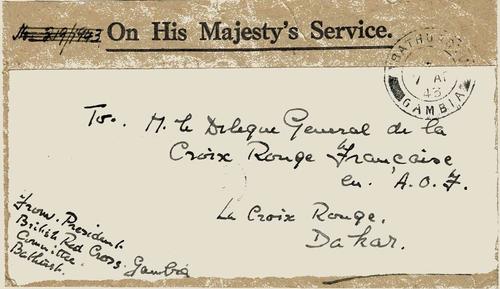 On His Majesty's Service.
BATHURST
7 AP
43
GAMBIA
To. M. le Delegue General de la
Croix Rouge Française
en. A.O.F.
La Croix Rouge.
Dakar.
From. President.
British Red Cross.
Committee. Gambia
Bathurst.